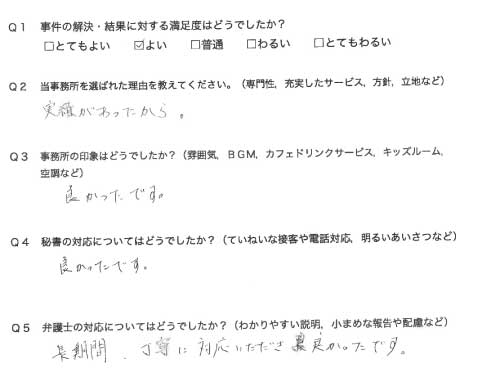 Q1 事件の解決・結果に対する満足度はどうでしたか？
□とてもよい ☑よい □普通 □わるい □とてもわるい
Q2 当事務所を選ばれた理由を教えてください。（専門性，充実したサービス，方針，立地など）
実績があったから。
Q3 事務所の印象はどうでしたか？（雰囲気，BGM，カフェドリンクサービス，キッズルーム，
空調など）
良かったです。
Q4 秘書の対応についてはどうでしたか？（ていねいな接客や電話対応，明るいあいさつなど）
良かったです。
Q5 弁護士の対応についてはどうでしたか？（わかりやすい説明，小まめな報告や配慮など）
長期間、丁寧に対応いただき良かったです。